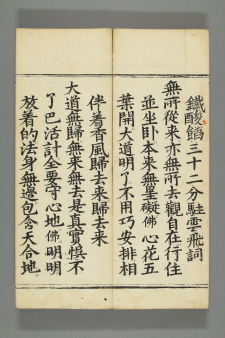 鐵酸餡三十二分駐雲飛詞
無所從來亦無所去觀自在行住
並坐卧本來無罣礙佛心花五
葉開大道明了不用巧安排相
伴着香風歸去來歸去來
大道無歸無來無去是真實慎不
了巴活計公要守心地佛明明
放着的法身無邊包含天合地